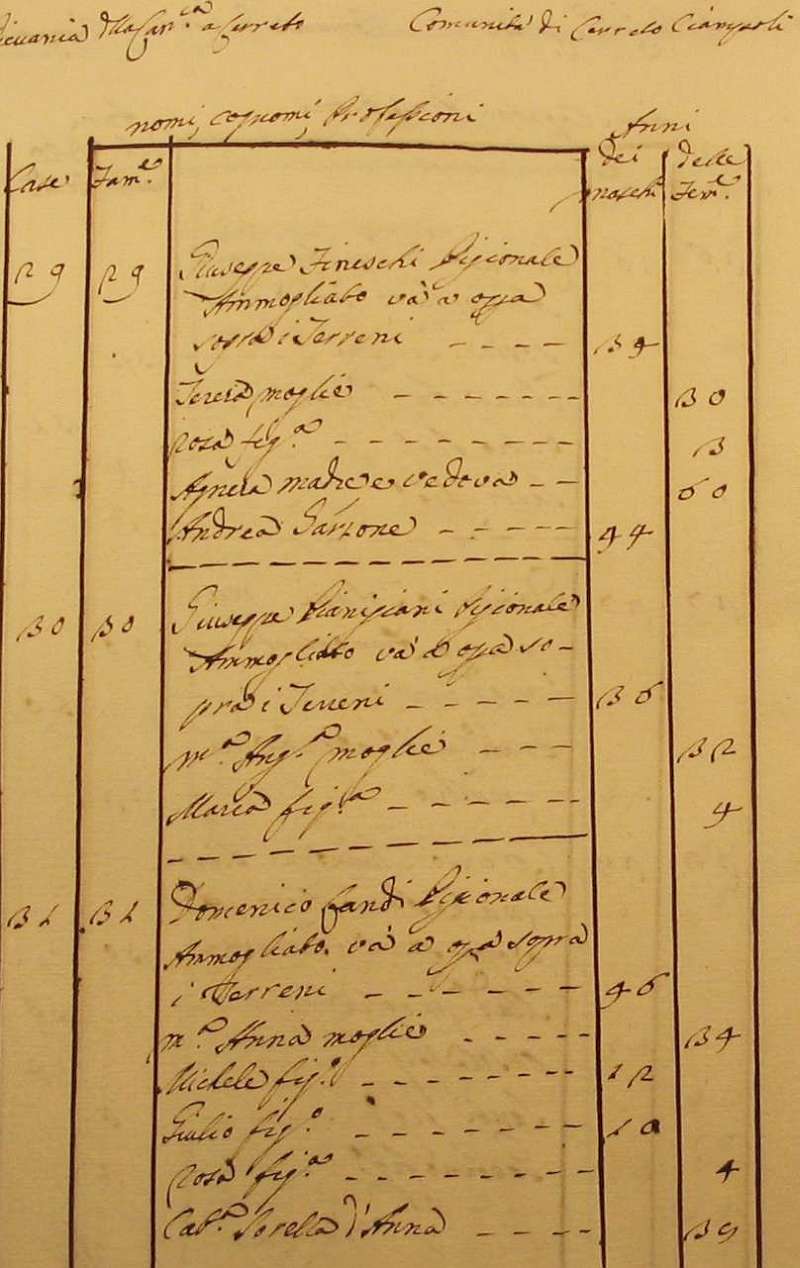 Comunità di Cerreto Ciampoli
nomi, cognomi, Professioni
Anni
Case Fam.e dei maschi delle Fem.e
29 29 Giuseppe Fineschi Pigionale
Ammogliato và a opra
sopra i Terreni - - - - 34
Teresa moglie - - - - - - - 30
rosa fig.a - - - - - - - - 3
Agnesa madre e vedova - - 60
Andrea Garzone - - - - - 44
30 30 Giuseppe Pianigiani Pigionale
Ammogliato và a opra so-
pra i Terreni - - - - - 36
m.a Ang.a moglie - - - 32
Maria fig.a - - - - - - 4
31 31 Domenico Pigionale
Ammogliato. và a opra sopra
i Terreni - - - - - - 46
m.a Anna moglie - - - - 34
Michele fig.o - - - - - - - 12
Giulio fig.o - - - - - - - 10
rosa fig.a - - - - - - - - 4
Cat.a Sorella d'Anna - - - - 39